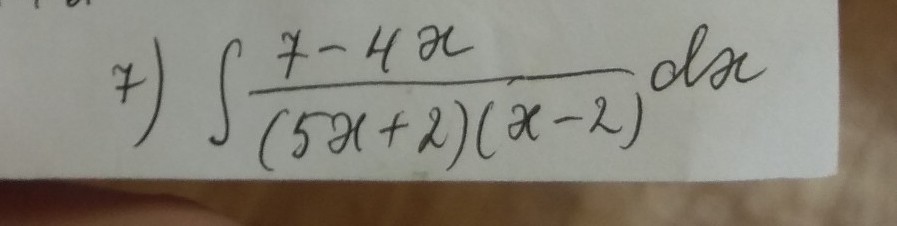 7) ∫ 7-4x / (5x+2)(x-2) dx